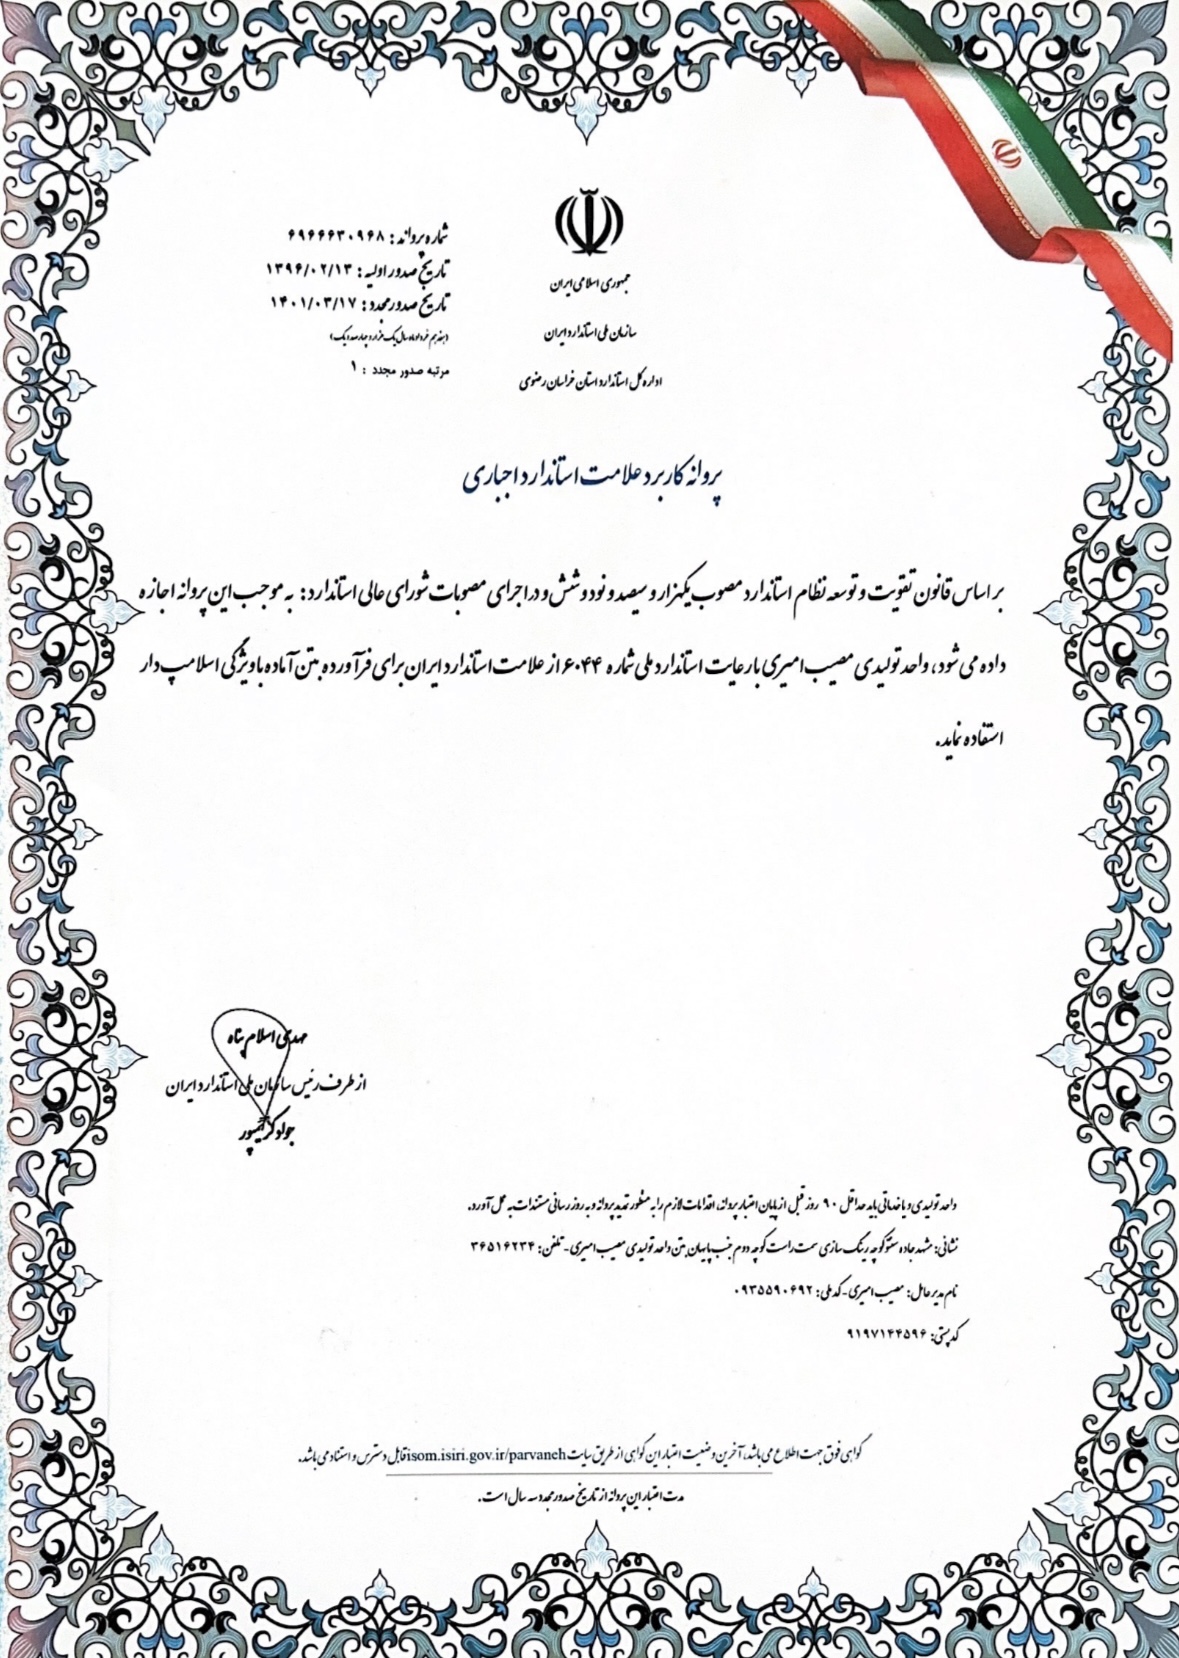 جمهوری اسلامی ایران
سازمان ملی استاندارد ایران
اداره کل استاندارد استان خراسان رضوی
شماره پروانه : ۶۹۶۶۶۳۰۹۶۸
تاریخ صدور اولیه : ۱۳۹۶/۰۲/۱۳
تاریخ صدور مجدد : ۱۴۰۱/۰۳/۱۷
(هفدهم خرداد ماه سال یک هزار و چهارصد و یک)
مرتبه صدور مجدد : ۱
پروانه کاربرد علامت استاندارد اجباری
بر اساس قانون تقویت و توسعه نظام استاندارد مصوب یکهزار و سیصد و نود و شش و در اجرای مصوبات شورای عالی استاندارد : به موجب این پروانه اجازه
داده می شود، واحد تولیدی مصیب امیری با رعایت استاندارد ملی شماره ۶۰۴۴ از علامت استاندارد ایران برای فرآورده بتن آماده با ویژگی اسلامپ دار
استفاده نماید.
مهدی اسلام پناه
از طرف رئیس سازمان ملی استاندارد ایران
جواد کریمپور
واحد تولیدی و یا خدماتی باید حداقل ۹۰ روز قبل از پایان اعتبار پروانه، اقدامات لازم را به منظور تمدید پروانه و به روز رسانی مستندات به عمل آورد.
نشانی: مشهد جاده سنتو کوچه رینگ سازی سمت راست کوچه دوم جنب پایهان بتن واحد تولیدی مصیب امیری - تلفن: ۳۶۵۱۶۲۳۴
نام مدیرعامل: مصیب امیری - کد ملی: ۰۹۳۵۵۹۰۶۹۲
کد پستی: ۹۱۹۷۱۴۴۵۹۶
گواهی فوق جهت اطلاع می باشد، آخرین وضعیت اعتبار این گواهی از طریق سایت isom.isiri.gov.ir/parvaneh قابل دسترس و استناد می باشد.
مدت اعتبار این پروانه از تاریخ صدور مجدد سه سال است.